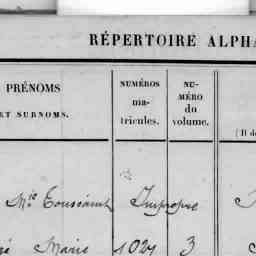 RÉPERTOIRE ALPHA
PRÉNOMS
ET SURNOMS.
NUMÉROS
ma-
tricules.
NU-
MÉRO
du
volume.
Mie Toussaint Impropre
Marie 1027 3